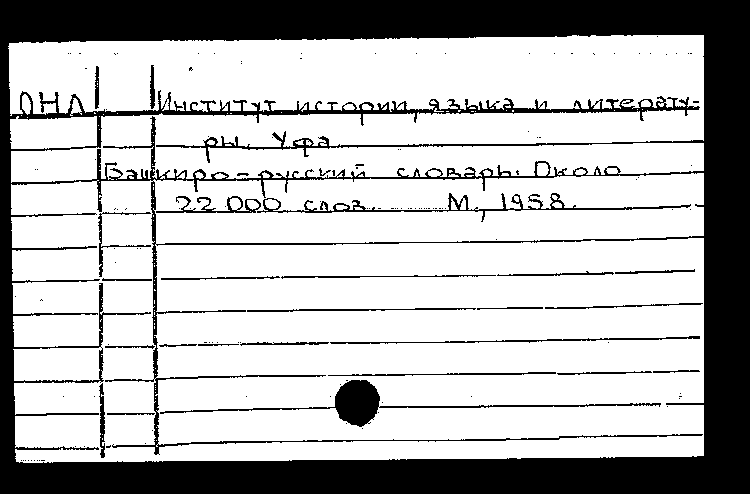 ОНЛ Институт истории, языка и литерату-
ры. Уфа
Башкиро-русский словарь. Около
22 000 слов. М., 1958.